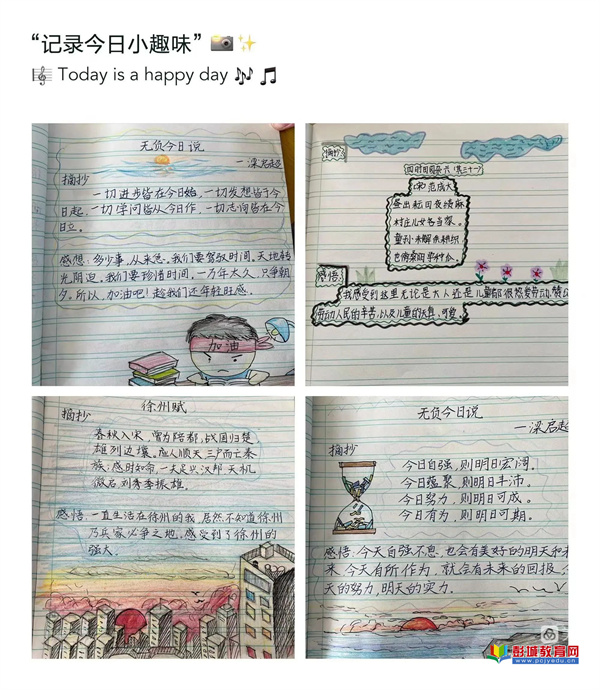 “记录今日小趣味”
Today is a happy day
无负今日说
—梁启超
摘抄
一切进步皆在今日始,一切发想皆于今
日起,一切学问皆从今日作,一切志向皆在今
日立。
感想:多少事,从来急。我们要驾驭时间。天地转
光阴迫。我们要珍惜时间。一万年太久,只争朝
夕。所以,加油吧!趁我们还年轻旺盛。
加油
摘抄
四时田园杂兴(其三十一)
(宋)范成大
昼出耘田夜绩麻
村庄儿女各当家。
童孙未解供耕织
也傍桑阴学种瓜。
感悟:
我感受到这里无论是大人还是儿童都很热爱劳动,赞
劳动人民的辛苦,以及儿童的天真、可爱。
徐州赋
摘抄
春秋入宋,曾为陪都,战国归楚
雄列边壤。应人顺天三户而亡秦
族;感时如命,一夫足兴汉邦天机
感悟:一直生活在徐州的我,居然不知道徐州
乃兵家必争之地,感受到了徐州的
强大。
无负今日说
—梁启超
摘抄
今日自强,则明日宏阔。
今日蕴聚,则明日丰沛。
今日努力,则明日可成。
今日有为,则明日可期。
感悟:今天自强不息,也会有美好的明天和未
来,今天有所作为,就会有未来的回报,
天的努力,明天的实力。
彭城教育网
www.pcjyedu.cn